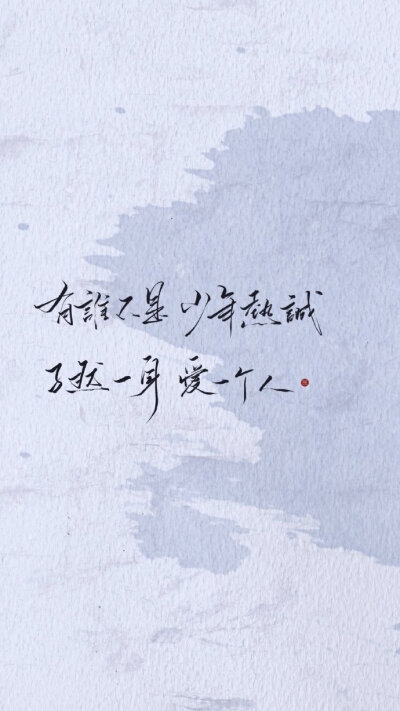 有誰不是 少年熱誠
了然一身 愛一个人